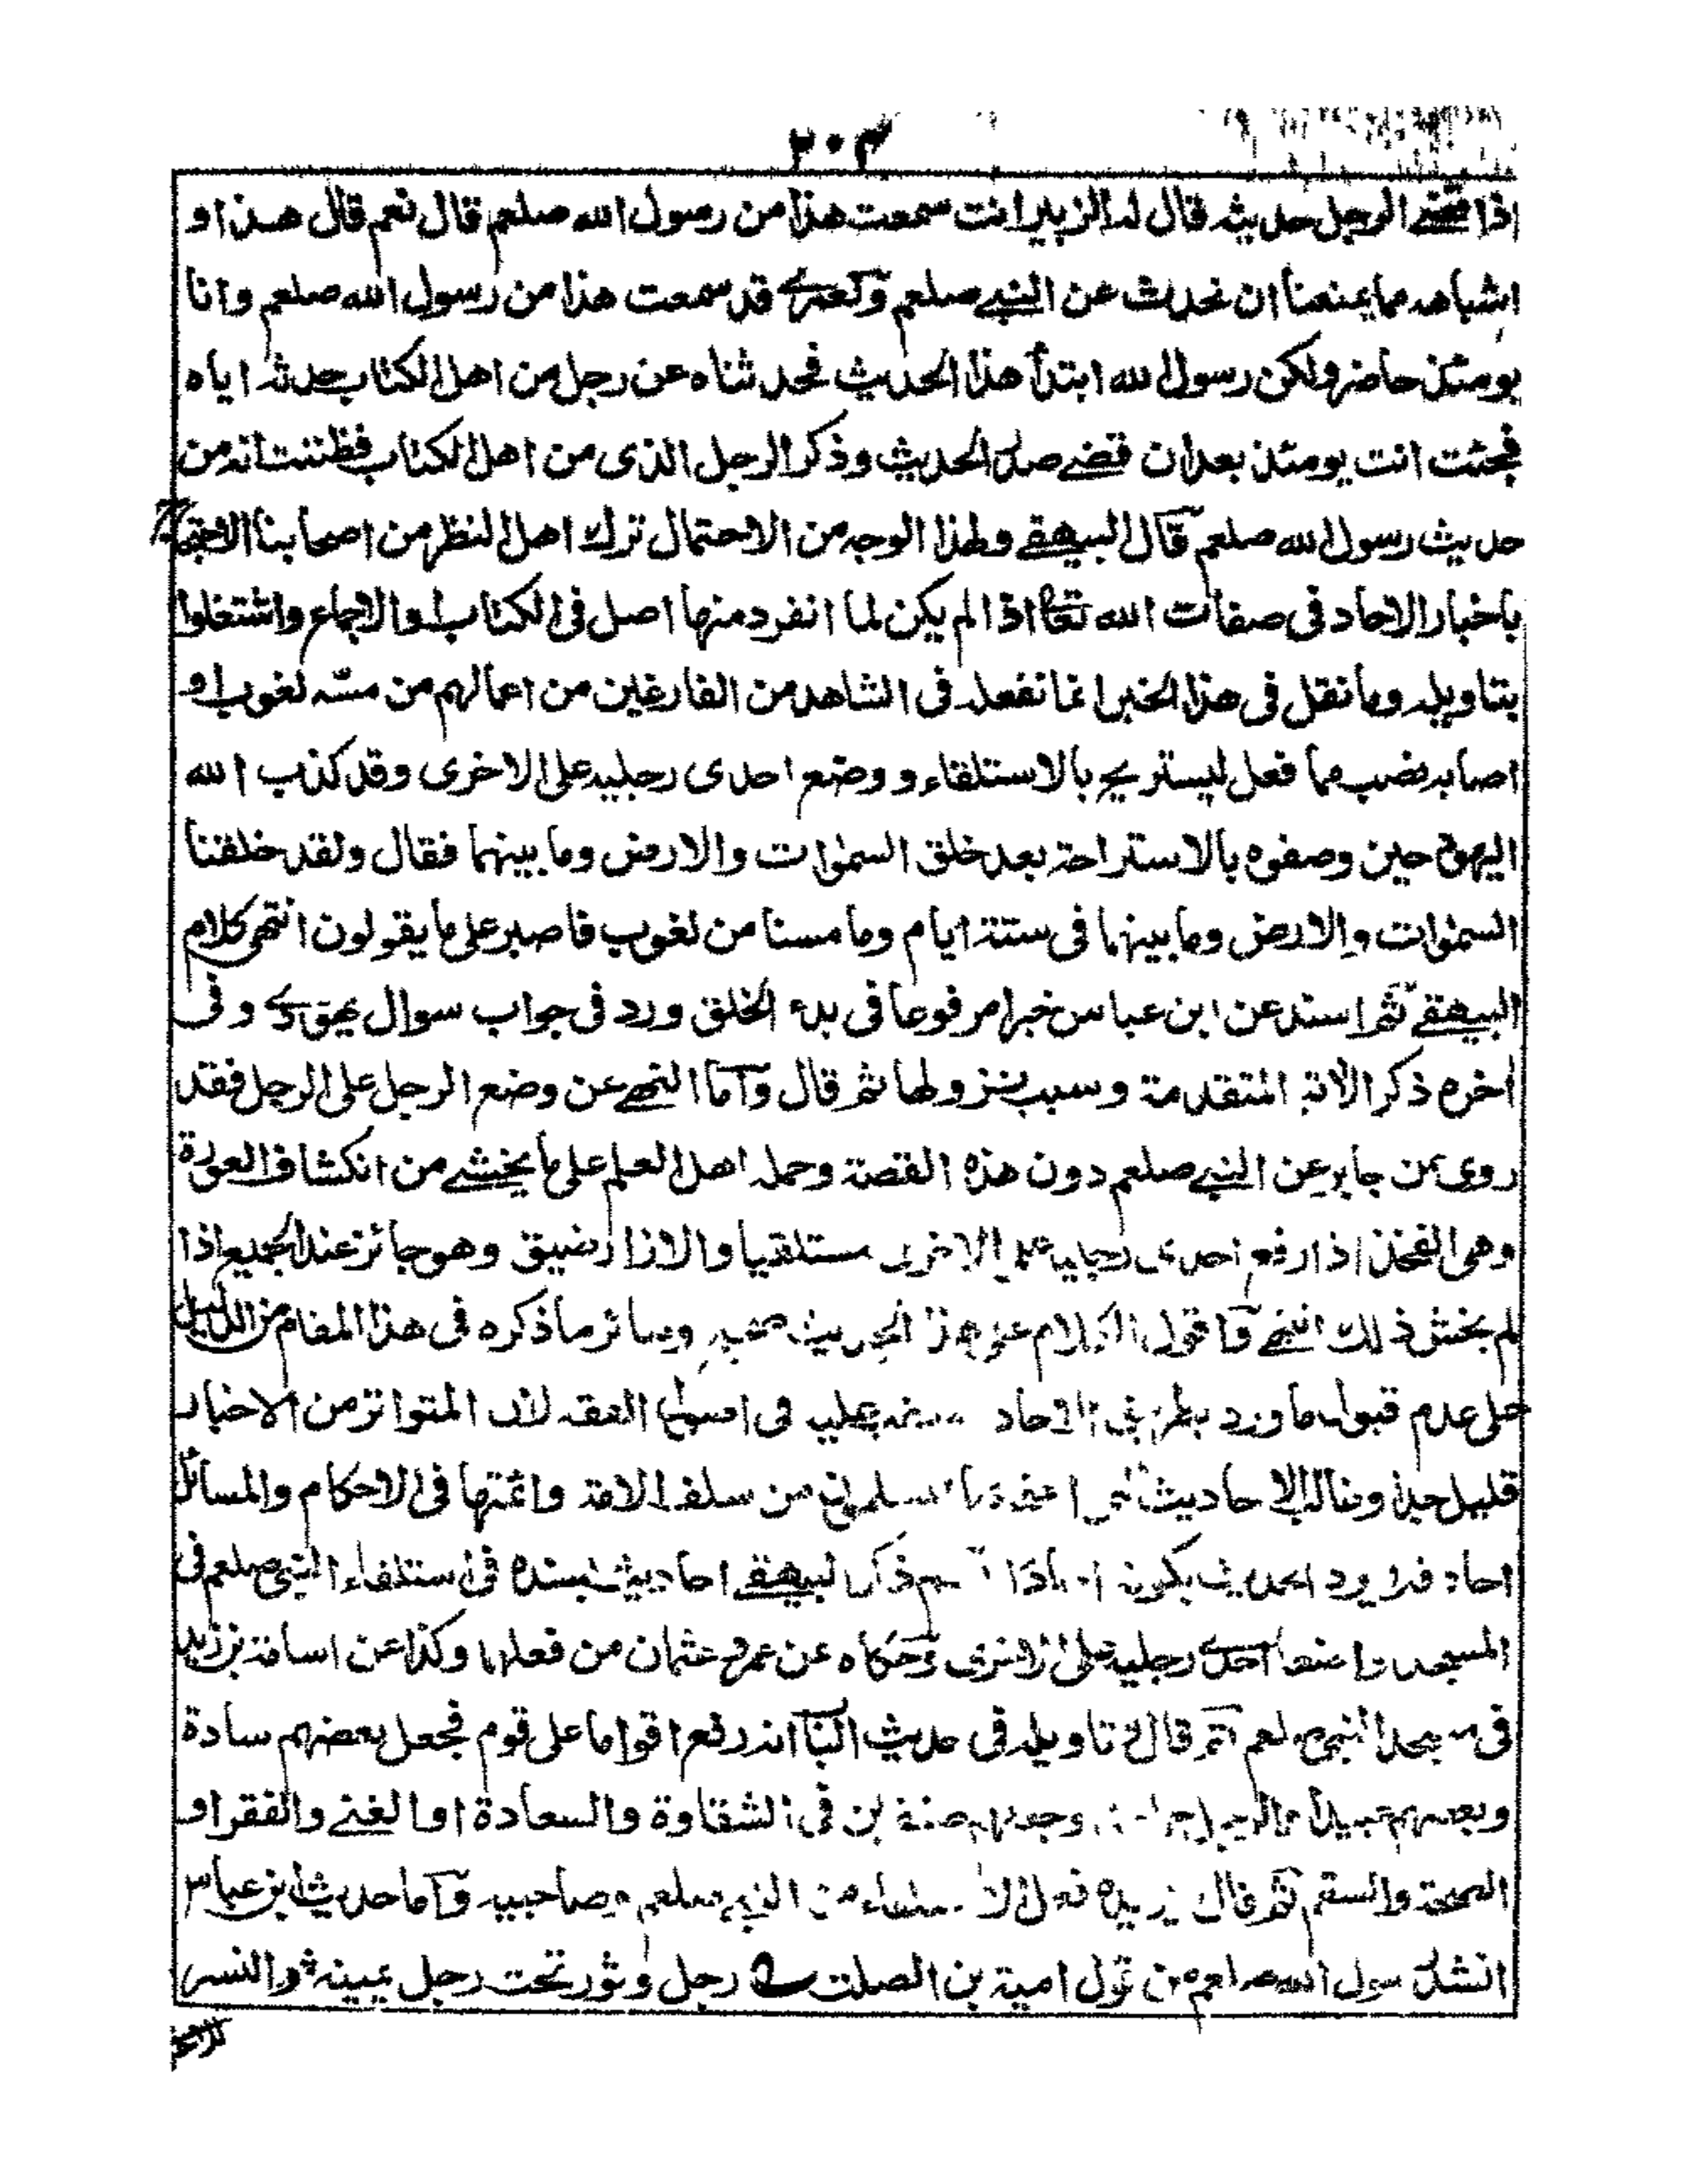 ٢٠٣
اذا قضى الرجل حديثه قال له الزبير انت سمعت هذا من رسول الله صلعم قال نعم قال هذا و
اشباهه مما يمنعنا ان نحدث عن النبي صلعم ولعمري قد سمعت هذا من رسول الله صلعم وانا
يومئذ حاضر ولكن رسول الله ابتدأ هذا الحديث فحدثناه عن رجل من اهل الكتاب حدثه اياه
فجئت انت يومئذ بعد ان قضى صدر الحديث وذكر الرجل الذى من اهل الكتاب فظننت انه من
حديث رسول الله صلعم قال البيهقي ولهذا الوجه من الاحتمال ترك اهل النظر من اصحابنا الاحتجاج
باخبار الاحاد فى صفات الله تعالى اذا لم يكن لما انفرد منها اصل فى الكتاب او الاجماع واشتغلوا
بتاويله وما نقل فى هذا الخبر انما نفعله فى الشاهد من الفارغين من اعمالهم من مسه لغوب او
اصابه نصب مما فعل ليستريح بالاستلقاء و وضع احدى رجليه على الاخرى وقد كذب الله
اليهود حين وصفوه بالاستراحة بعد خلق السموات والارض وما بينهما فقال ولقد خلقنا
السموات والارض وما بينهما فى ستة ايام وما مسنا من لغوب فاصبر على ما يقولون انتهى كلام
البيهقي ثم اسند عن ابن عباس خبرا مرفوعا فى بدء الخلق ورد فى جواب سوال يهودي و فى
اخره ذكر الاية المتقدمة وسبب نزولها ثم قال واما النهي عن وضع الرجل على الرجل فقد
روى عن جابر عن النبي صلعم دون هذه القصة وحمله اهل العلم على ما يخشى من انكشاف العورة
وهى الفخذ اذا رفع احدى رجليه على الاخرى مستلقيا والازار ضيق وهو جائز عند الجميع اذا
لم يخش ذلك انتهى واقول الكلام على هذا الحديث صحيح وسائر ما ذكره فى هذا المقام من الدليل
على عدم قبول ما ورد بطريق الاحاد فى اصول الفقه لان المتواتر من الاخبار
قليل جدا وغالب الاحاديث من سلف الامة وائمتها فى الاحكام والمسائل
احاد فلا يرد الحديث بكونه ثم ذكر البيهقي احاديث بسنده فى استلقاء النبى صلعم فى
المسجد واضعا احدى رجليه على الاخرى وحكاه عن عمر وعثمان من فعلهما وكذا عن اسامة بن زيد
فى مسجد النبى صلعم ثم قال تاويله فى حديث البنا انه رفع اقواما على قوم فجعل بعضهم سادة
وبعضهم عبيدا وجعلهم صنفين فى الشقاوة والسعادة او الغنى والفقر او
الصحة والسقم ثم قال من النبي صلعم وصاحبيه واما حديث ابن عباس
انشد رسول الله صلعم من قول امية بن الصلت رجل وثور تحت رجل يمينه والنسر